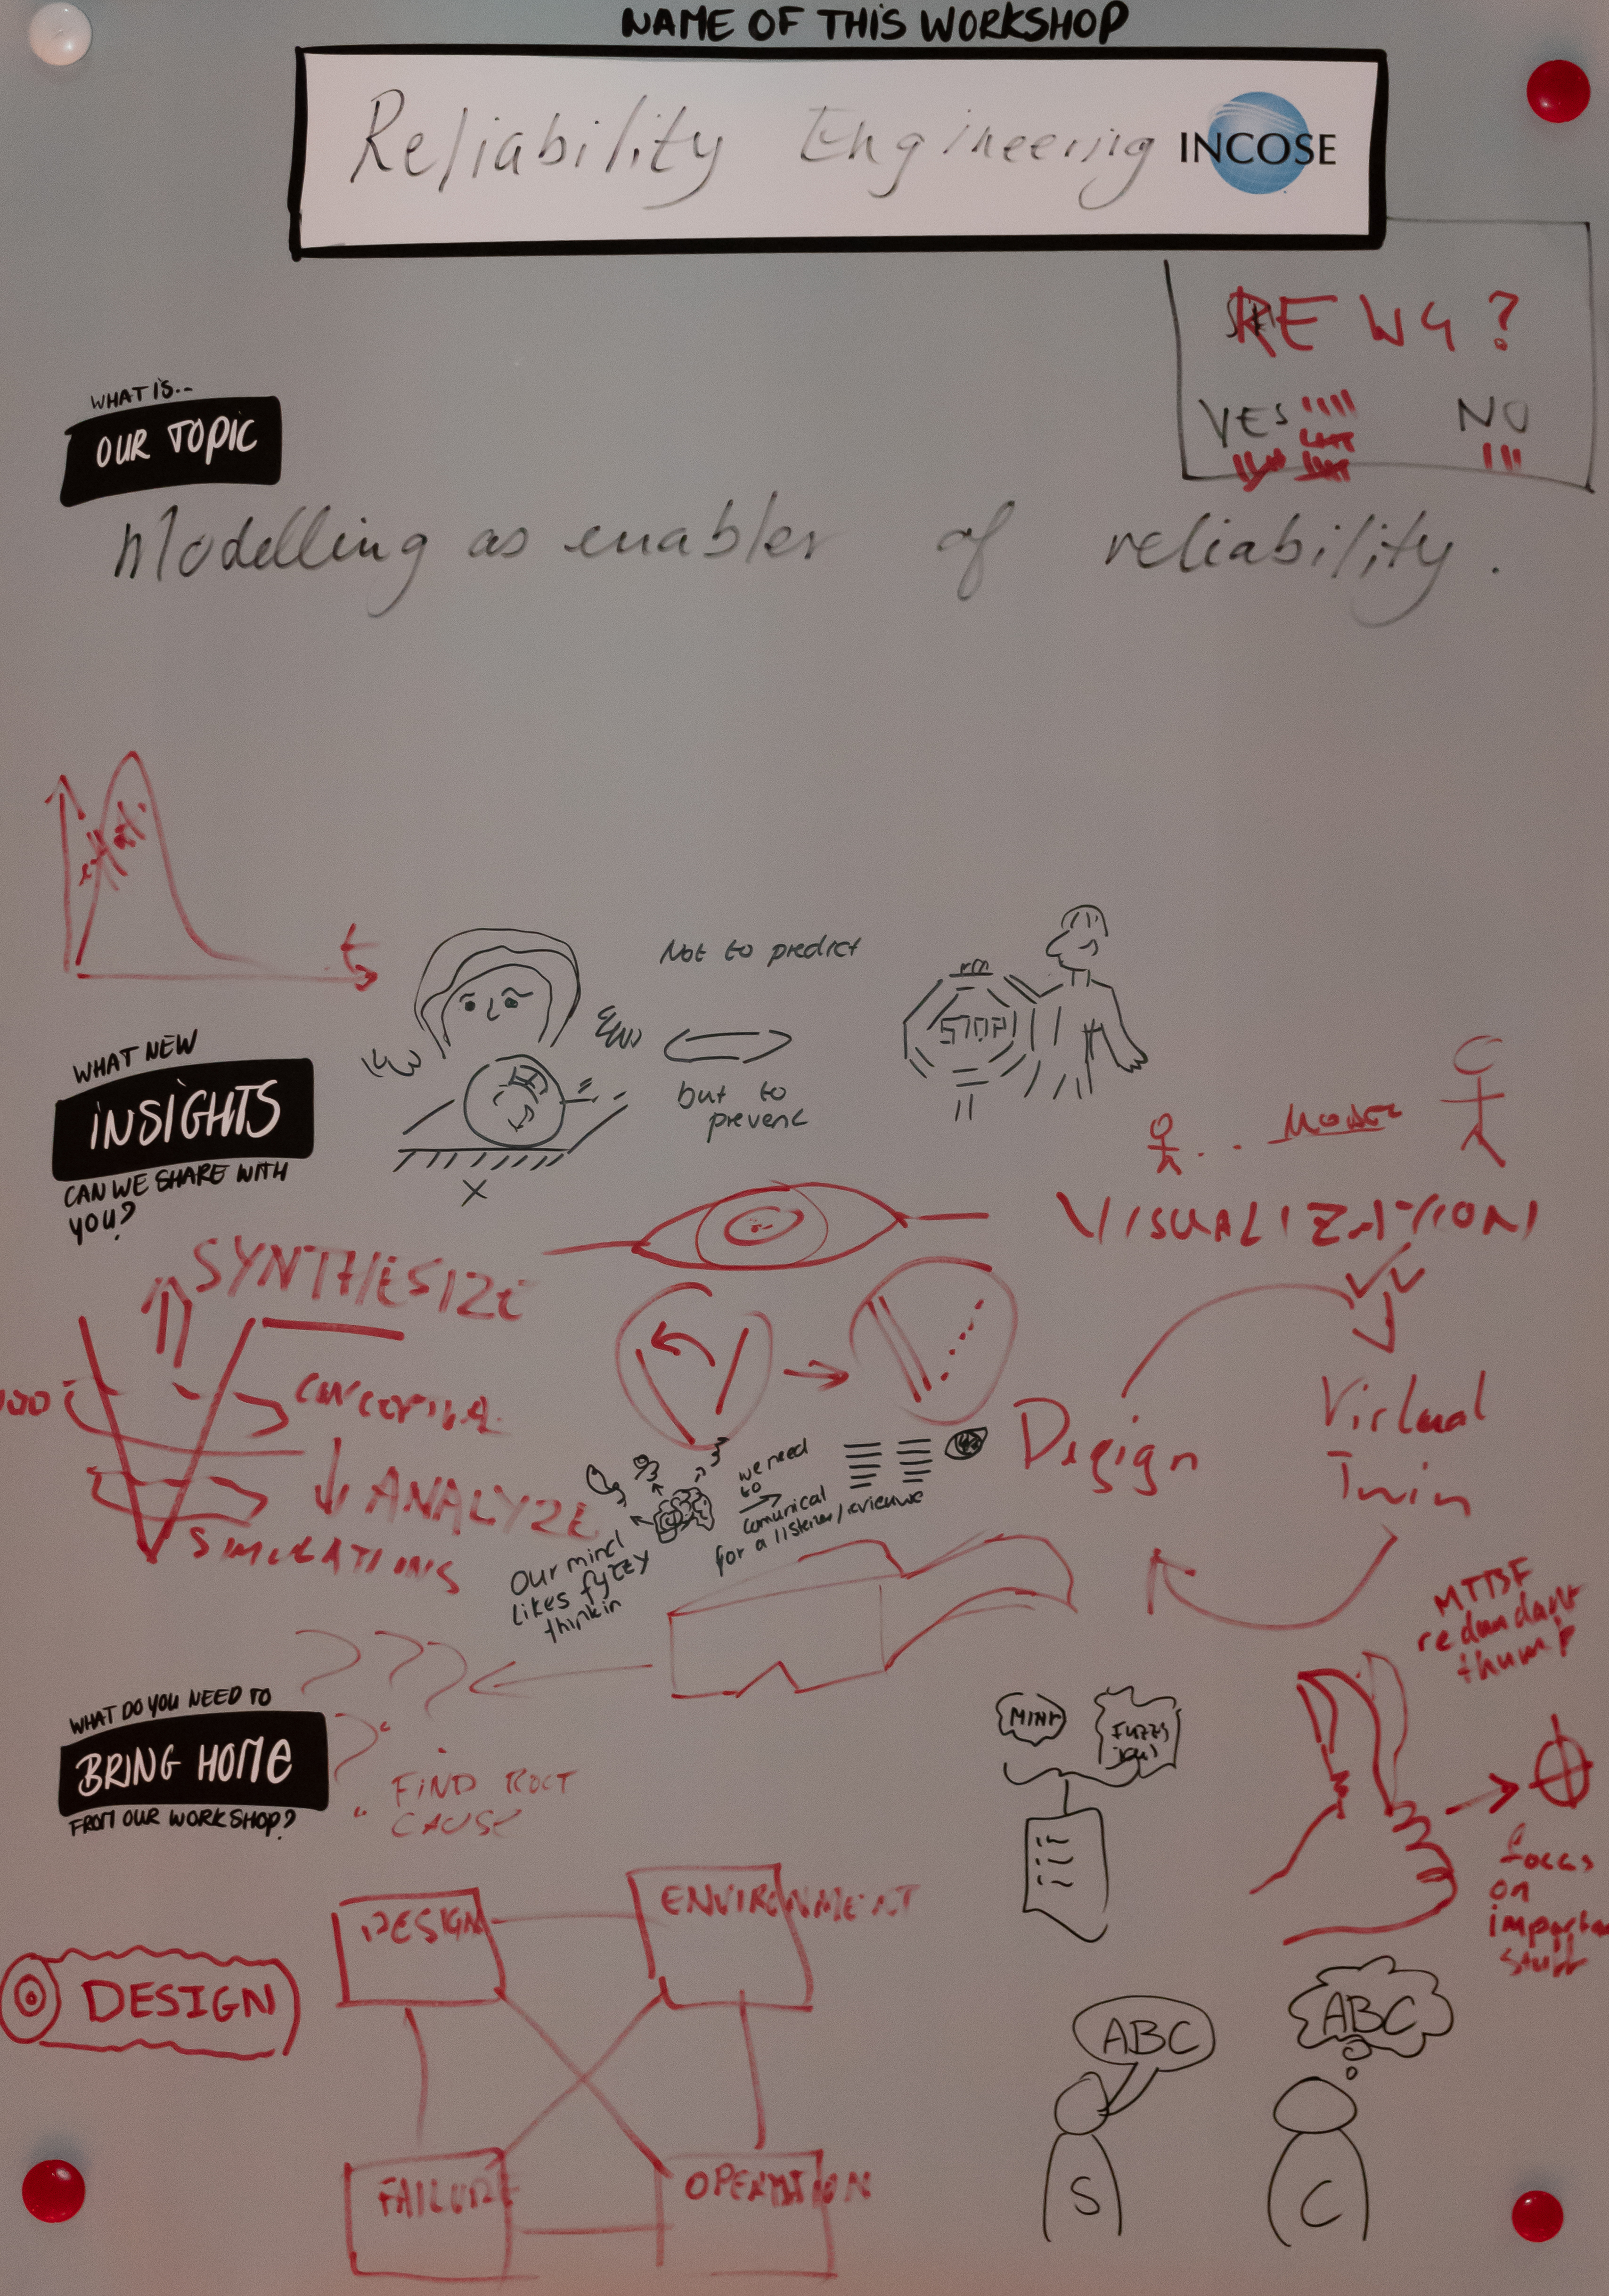 NAME OF THIS WORKSHOP
Reliability Engineering
INCOSE
RE WG ?
YES
NO
WHAT IS...
OUR TOPIC
Modelling as enabler of reliability.
t
Not to predict
but to
prevent
STOP
WHAT NEW
INSIGHTS
CAN WE SHARE WITH
YOU?
X
MODEL
VISUALIZATION
SYNTHESIZE
ANALYZE
SIMULATIONS
Our mind
likes fyzzy
thinkin
we need
to
comunical
for a listener/revieuwe
Design
Virtual
Twin
MTBF
redundant
thump
focus
on
importan
stuff
WHAT DO YOU NEED TO
BRING HOME
FROM OUR WORKSHOP?
FIND ROOT
CAUSE
DESIGN
ENVIRONMENT
DESIGN
FAILURE
OPERATION
ABC
ABC
S
C